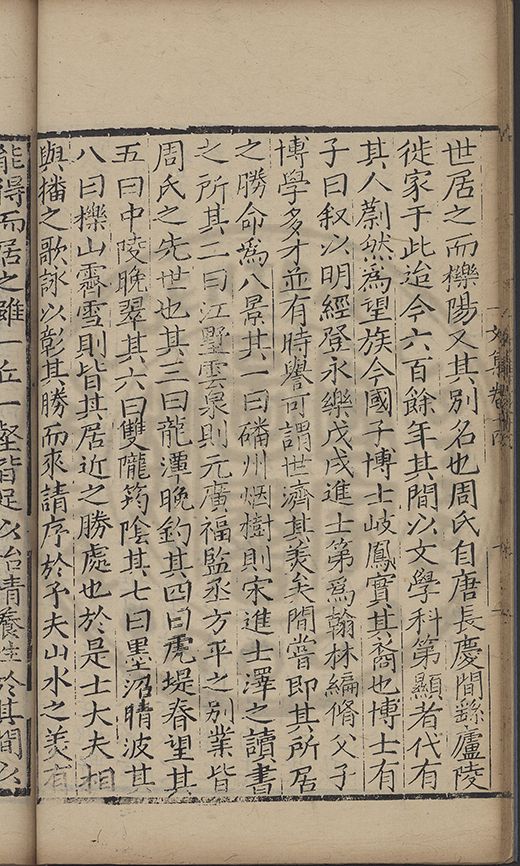 世居之而櫟陽又其別名也周氏自唐長慶間繇廬陵
徙家于此迨今六百餘年其間以文學科第顯者代有
其人蔚然為望族今國子博士岐鳳實其裔也博士有
子曰叙以明經登永樂戊戌進士第為翰林編脩父子
博學多才並有時譽可謂世濟其美矣間嘗即其所居
之勝命為八景其一曰磻州烟樹則宋進士澤之讀書
之所其二曰江墅雲泉則元廣福監丞方平之別業皆
周氏之先世也其三曰龍潭晚釣其四曰虎堤春望其
五曰中陵晚翠其六曰雙隴筠陰其七曰墨沼晴波其
八曰櫟山霽雪則皆其居近之勝處也於是士大夫相
與播之歌詠以彰其勝而來請序於予夫山水之美有
能得而居之雖一丘一壑皆足以怡情養生於其間公